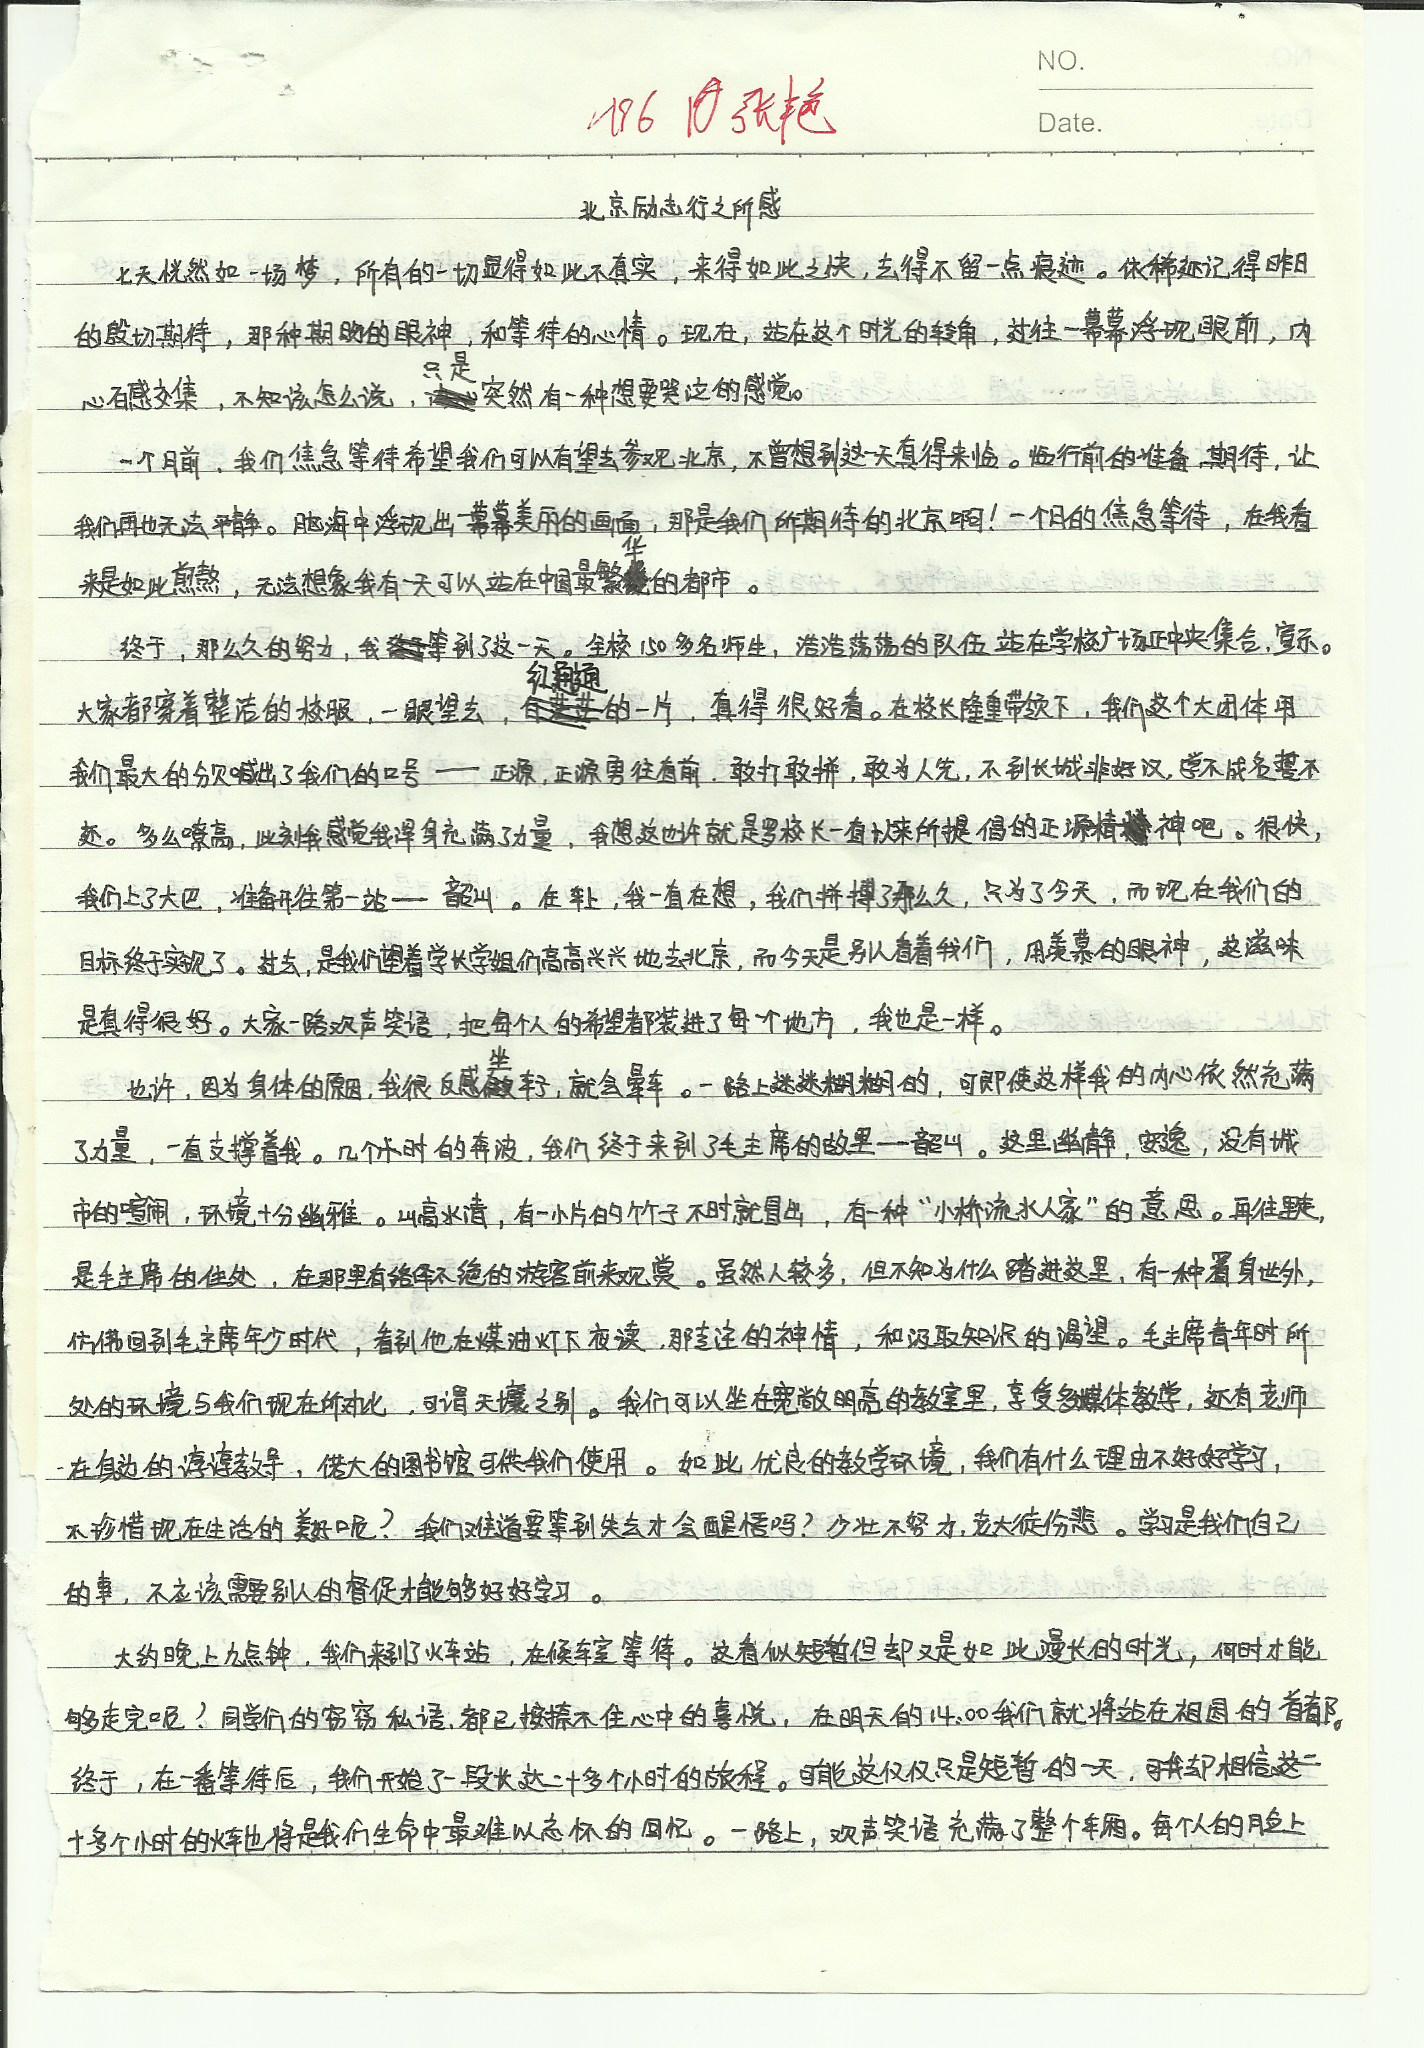 NO.
Date.
196 张艳
北京励志行之所感
七天恍然如一场梦，所有的一切显得如此不真实，来得如此之快，去得不留一点痕迹。依稀还记得昨日
的殷切期待，那种期盼的眼神，和等待的心情。现在，站在这个时光的转角，过往一幕幕浮现眼前，内
心百感交集，不知该怎么说，只是突然有一种想要哭泣的感觉。
一个月前，我们焦急等待希望我们可以有望去参观北京，不曾想到这一天真得来临。临行前的准备、期待，让
我们再也无法平静。脑海中浮现出一幕幕美丽的画面，那是我们所期待的北京啊！一个月的焦急等待，在我看
来是如此煎熬，无法想象我有一天可以站在中国最繁华的都市。
终于，那么久的努力，我等到了这一天。全校150多名师生，浩浩荡荡的队伍站在学校广场正中央集合，宣示。
大家都穿着整洁的校服，一眼望去，红通通的一片，真得很好看。在校长隆重带领下，我们这个大团体用
我们最大的分贝喊出了我们的口号——正源，正源勇往直前，敢打敢拼，敢为人先，不到长城非好汉，学不成名誓不
还。多么嘹高，此刻我感觉我浑身充满了力量，我想这也许就是罗校长一直以来所提倡的正源精神吧。很快，
我们上了大巴，准备开往第一站——韶山。在车上，我一直在想，我们拼搏了那么久，只为了今天，而现在我们的
目标终于实现了。过去，是我们望着学长学姐们高高兴兴地去北京，而今天是别人看着我们，用羡慕的眼神，这滋味
是真得很好。大家一路欢声笑语，把每个人的希望都装进了每一个地方，我也是一样。
也许，因为身体的原因，我很反感坐车了，就会晕车。一路上迷迷糊糊的，可即使这样我的内心依然充满
了力量，一直支撑着我。几个小时的奔波，我们终于来到了毛主席的故里——韶山。这里幽静，安逸，没有城
市的喧闹，环境十分幽雅。山高水清，有一小片的竹子不时就冒出，有一种“小桥流水人家”的意思。再往里走，
是毛主席的住处，在那里有络绎不绝的游客前来观赏。虽然人较多，但不知为什么踏进这里，有一种置身世外，
仿佛回到毛主席年少时代，看到他在煤油灯下夜读，那专注的神情，和汲取知识的渴望。毛主席青年时所
处的环境与我们现在所对比，可谓天壤之别。我们可以坐在宽敞明亮的教室里，享受多媒体教学，还有老师
在身边的谆谆教导，偌大的图书馆可供我们使用。如此优良的教学环境，我们有什么理由不好好学习，
不珍惜现在生活的美好呢？我们难道要等到失去才会醒悟吗？少壮不努力，老大徒伤悲。学习是我们自己
的事，不应该需要别人的督促才能够好好学习。
大约晚上九点钟，我们来到了火车站，在候车室等待。这看似短暂但却又是如此漫长的时光，何时才能
够走完呢？同学们的窃窃私语，都已按捺不住心中的喜悦，在明天的14:00我们就将站在祖国的首都。
终于，在一番等待后，我们开始了一段长达二十多个小时的旅程。可能这仅仅只是短暂的一天，可我却相信这二
十多个小时的火车也将是我们生命中最难以忘怀的回忆。一路上，欢声笑语充满了整个车厢。每个人的脸上